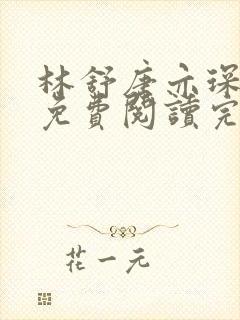 林舒唐亦琛
免費閱讀完
花一元